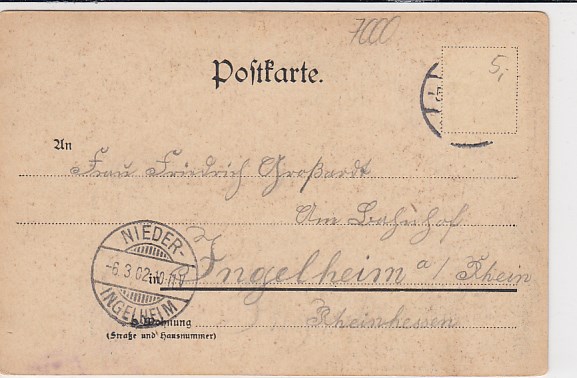 7000
5,-
Postkarte.
An
Frau Friedrich Großardt
Am Bahnhof
in Ingelheim a/ Rhein
Rheinhessen
Wohnung
(Straße und Hausnummer)
NIEDER-
-6.3.02
INGELHEIM